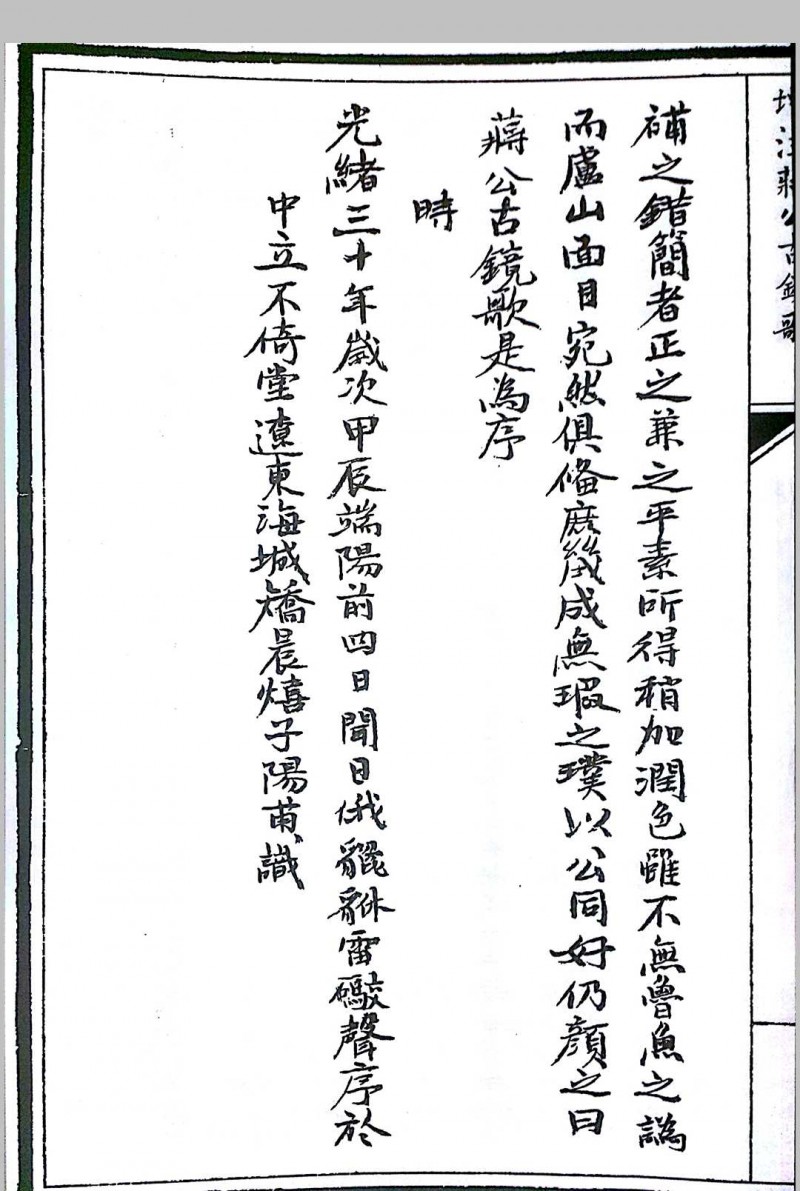 注蔣公古鏡歌
補之錯簡者正之兼之平素所得稍加潤色雖不無魯魚之譌
而盧山面目宛然俱俻庶幾成無瑕之璞以公同好仍顏之曰
蔣公古鏡歌是為序
時
光緒三十年歲次甲辰端陽前四日聞日俄貔貅雷礮聲序於
中立不倚堂遼東海城矯晨熺子陽甫識